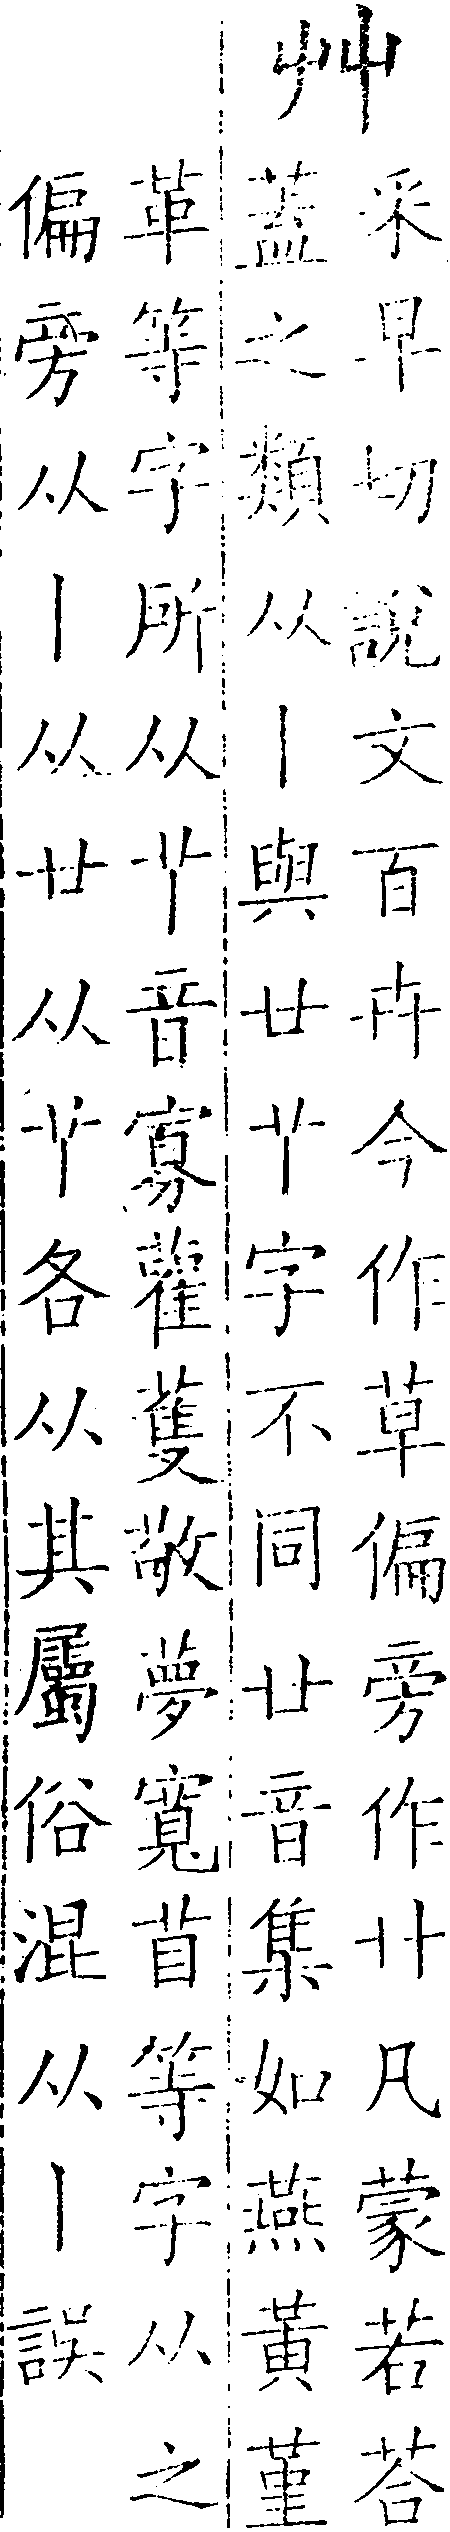 艸
采早切說文百卉今作草偏旁作卝凡蒙若荅
蓋之類从丨與廿丷字不同廿音集如燕黃堇
革等字所从𦫳音寡雚蒦敬夢寬苜等字从之
偏旁从丨从廿从𦫳各从其屬俗混从丨誤